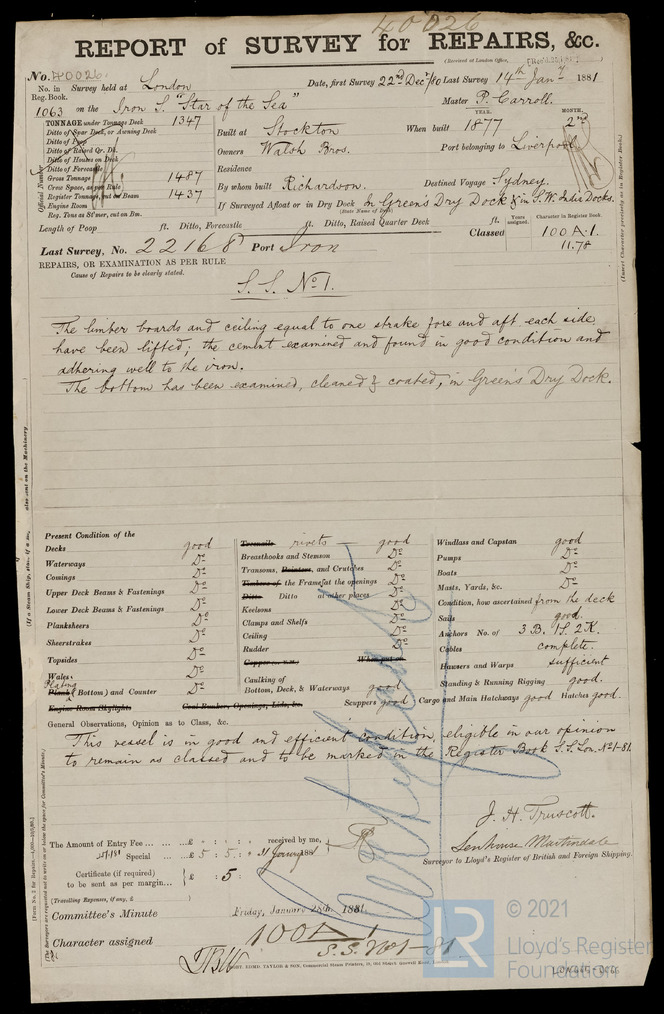 40026
REPORT of SURVEY for REPAIRS, &c.
(Received at London Office,
No. 40026
No. in Reg. Book. Survey held at London Date, first Survey 22nd Decr /80 Last Survey 14th Jany 1881
1063 on the Iron S. "Star of the Sea" Master P. Carroll.
TONNAGE under Tonnage Deck 1347
Ditto of Spar Deck, or Awning Deck
Ditto of Poop
Ditto of Raised Qr. Dk.
Ditto of Houses on Deck
Ditto of Forecastle
Gross Tonnage 1487
Crew Space, as per Rule
Register Tonnage, cut on Beam 1437
Engine Room
Reg. Tons as St'mer, cut on Bm.
Official Number
Built at Stockton When built YEAR. 1877 MONTH. 2nd
Owners Walsh Bros. Port belonging to Liverpool
Residence
By whom built Richardson. Destined Voyage Sydney.
If Surveyed Afloat or in Dry Dock in Green's Dry Dock & in S.W. India Docks.
(State Name of Dock)
Length of Poop ft. Ditto, Forecastle ft. Ditto, Raised Quarter Deck ft.
Years assigned. Character in Register Book.
Classed 100 A.1.
11.78
(Insert Character precisely as in Register Book.)
Last Survey, No. 22168 Port Iron
REPAIRS, OR EXAMINATION AS PER RULE
Cause of Repairs to be clearly stated.
S. S. No 1.
The limber boards and ceiling equal to one strake fore and aft each side
have been lifted; the cement examined and found in good condition and
adhering well to the iron.
The bottom has been examined, cleaned & coated, in Green's Dry Dock.
Present Condition of the
Decks good
Waterways Do
Comings Do
Upper Deck Beams & Fastenings Do
Lower Deck Beams & Fastenings Do
Planksheers Do
Sheerstrakes Do
Topsides Do
Wales Do
Plating
Plank (Bottom) and Counter Do
Engine Room Skylights Coal Bunker, Openings, Lids, &c.
Treenails rivets good
Breasthooks and Stemson Do
Transoms, Pointers, and Crutches Do
Timbers of the Frames at the openings Do
Ditto Ditto at other places Do
Keelsons Do
Clamps and Shelfs Do
Ceiling Do
Rudder Do
Copper When put on
Caulking of
Bottom, Deck, & Waterways good
Scuppers good Cargo and Main Hatchways good Hatches good.
Windlass and Capstan good
Pumps Do
Boats Do
Masts, Yards, &c. Do
Condition, how ascertained from the deck
Sails good.
Anchors No. of 3 B. 1 S. 2 K.
Cables complete.
Hawsers and Warps sufficient
Standing & Running Rigging good.
General Observations, Opinion as to Class, &c.
This vessel is in good and efficient condition, eligible in our opinion
to remain as classed and to be marked in the Register Book S.S. Lon. No 1-81.
J. H. Truscott.
Senhouse Martindale
Surveyor to Lloyd's Register of British and Foreign Shipping.
The Amount of Entry Fee ... £ : : received by me,
Special ... £ 5 : 5 : 21 January 1881
Certificate (if required) to be sent as per margin £ : 5 :
(Travelling Expenses, if any, £ )
Committee's Minute Friday, January 28th, 1881.
Character assigned 100 A 1
S.S. No 1-81
© 2021
LR
Lloyd's Register
Foundation